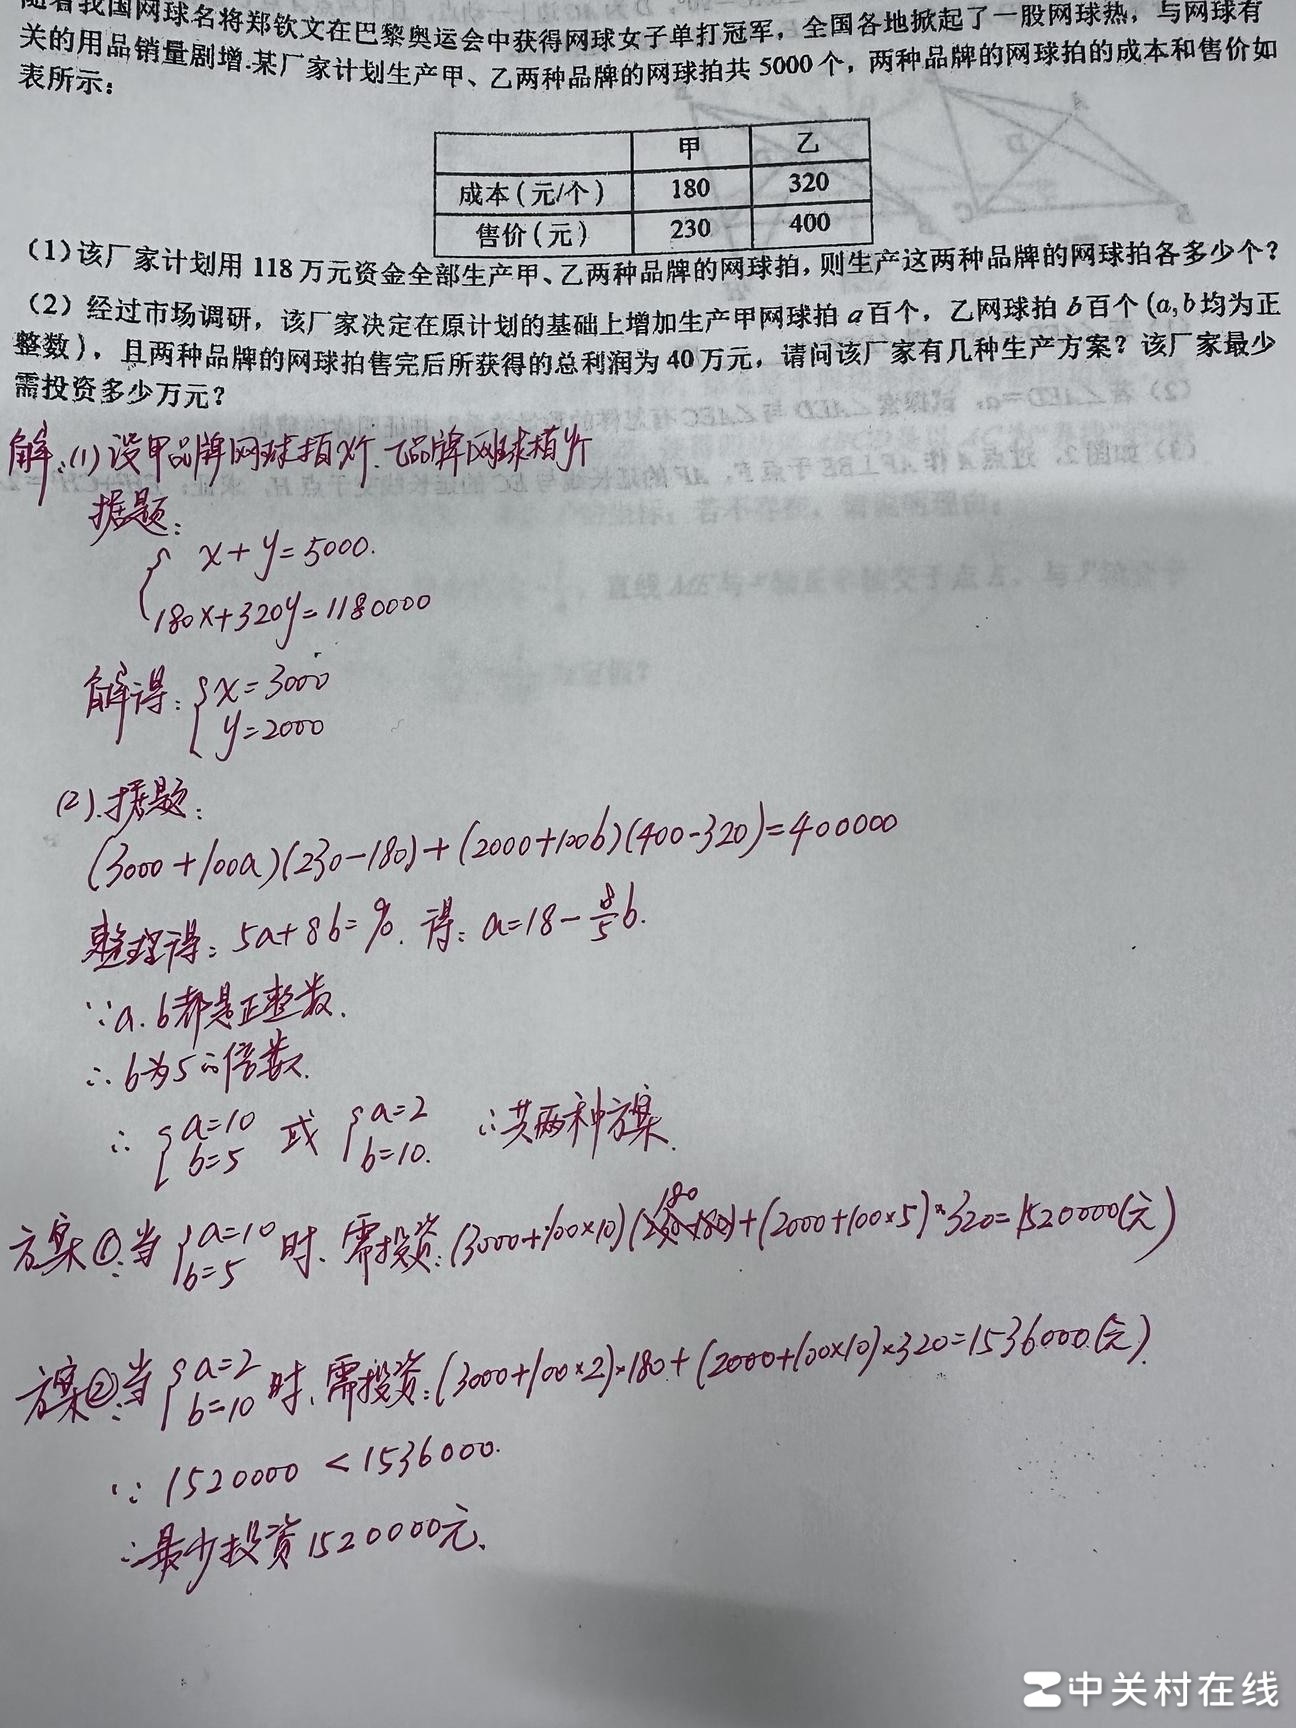 随着我国网球名将郑钦文在巴黎奥运会中获得网球女子单打冠军，全国各地掀起了一股网球热，与网球有
关的用品销量剧增.某厂家计划生产甲、乙两种品牌的网球拍共 5000 个，两种品牌的网球拍的成本和售价如
表所示：
甲 乙
成本（元/个） 180 320
售价（元） 230 400
（1）该厂家计划用 118 万元资金全部生产甲、乙两种品牌的网球拍，则生产这两种品牌的网球拍各多少个？
（2）经过市场调研，该厂家决定在原计划的基础上增加生产甲网球拍 a 百个，乙网球拍 b 百个（a,b 均为正
整数），且两种品牌的网球拍售完后所获得的总利润为 40 万元，请问该厂家有几种生产方案？该厂家最少
需投资多少万元？
解：(1) 设甲品牌网球拍x个.乙品牌网球拍y个
据题：
{ x+y=5000.
180x+320y=1180000
解得：{ x=3000
y=2000
(2).据题：
(3000+100a)(230-180)+(2000+100b)(400-320)=400000
整理得：5a+8b=90. 得：a=18-8/5b.
∵a.b都是正整数.
∴b为5的倍数.
∴ { a=10 b=5 或 { a=2 b=10. ∴共两种方案.
方案①：当 { a=10 b=5 时. 需投资：(3000+100×10)(230-180) 180+(2000+100×5)×320=1520000(元)
方案②：当 { a=2 b=10 时. 需投资：(3000+100×2)×180+(2000+100×10)×320=1536000.(元).
∵ 1520000 < 1536000.
∴最少投资1520000元.
中关村在线